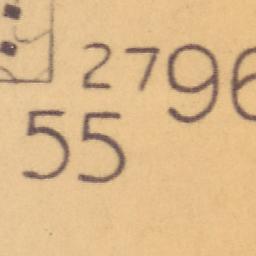 27 96
55